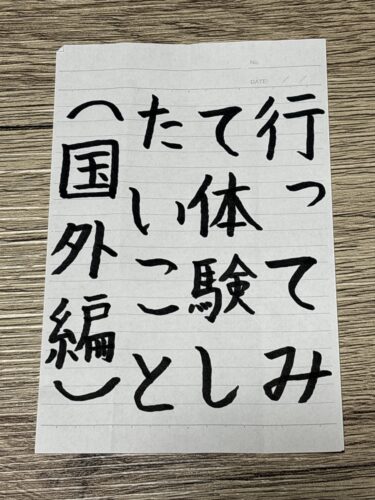 行ってみ
て体験し
たいこと
（国外編）
No.
DATE / /